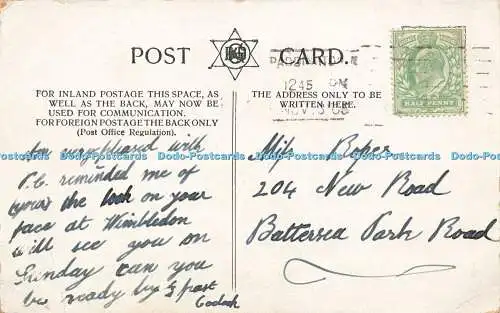 POST CARD.
FOR INLAND POSTAGE THIS SPACE, AS
WELL AS THE BACK, MAY NOW BE
USED FOR COMMUNICATION.
FOR FOREIGN POSTAGE THE BACK ONLY
(Post Office Regulation).
THE ADDRESS ONLY TO BE
WRITTEN HERE.
1245 PM
HALF PENNY
with
P.C. reminded me of
(yours) the look on your
face at Wimbledon
will see you on
Sunday can you
be ready by ½ past
6 oclock
Miss
204 New Road
Battersea Park Road
Dodo-Postcards Dodo-Postcards Dodo-Postcards Dodo-Postcards Dodo-Postcards